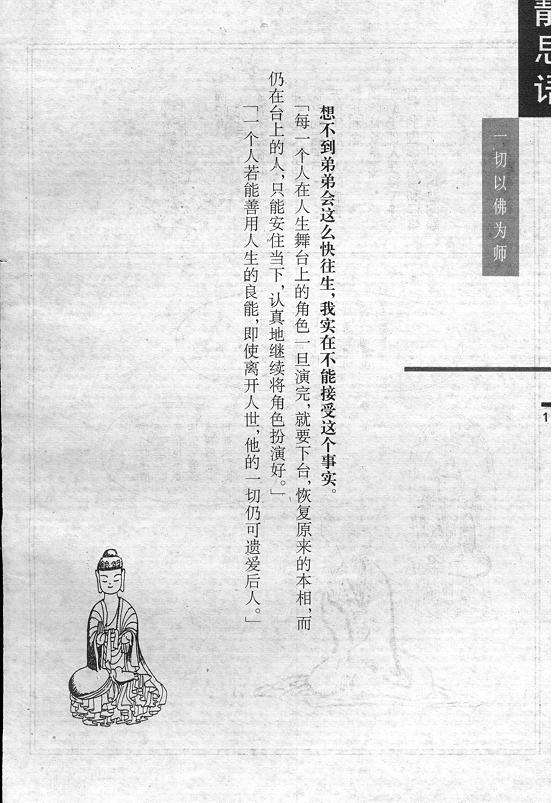 静思语
一切以佛为师
1
想不到弟弟会这么快往生，我实在不能接受这个事实。
「每一个人在人生舞台上的角色一旦演完，就要下台，恢复原来的本相，而
仍在台上的人，只能安住当下，认真地继续将角色扮演好。」
「一个人若能善用人生的良能，即使离开人世，他的一切仍可遗爱后人。」